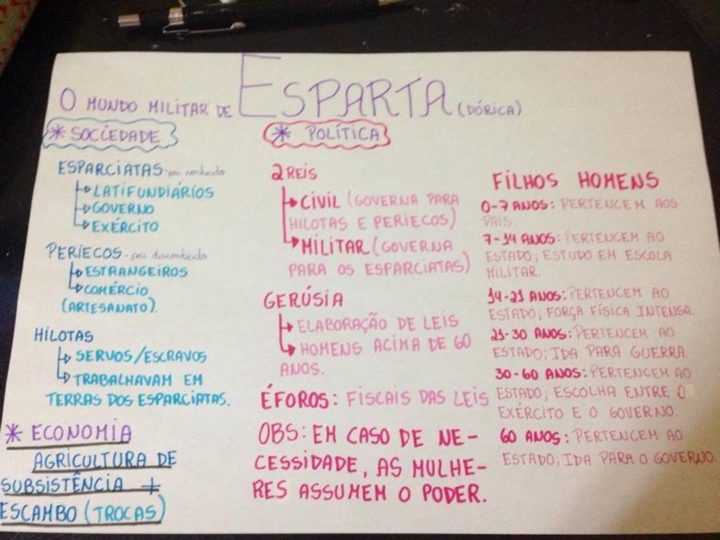 O MUNDO MILITAR DE ESPARTA (DÓRICA)
* SOCIEDADE
ESPARCIATAS - pai conhecido
LATIFUNDIÁRIOS
GOVERNO
EXÉRCITO
PERÍECOS - pai desconhecido
ESTRANGEIROS
COMÉRCIO
(ARTESANATO).
HILOTAS
SERVOS/ESCRAVOS
TRABALHAVAM EM
TERRAS DOS ESPARCIATAS.
* ECONOMIA
AGRICULTURA DE
SUBSISTÊNCIA +
ESCAMBO (TROCAS)
* POLÍTICA
2 REIS
CIVIL (GOVERNA PARA
HILOTAS E PERIECOS)
MILITAR (GOVERNA
PARA OS ESPARCIATAS)
GERÚSIA
ELABORAÇÃO DE LEIS
HOMENS ACIMA DE 60
ANOS.
ÉFOROS: FISCAIS DAS LEIS
OBS: EM CASO DE NE-
CESSIDADE, AS MULHE-
RES ASSUMEM O PODER.
FILHOS HOMENS
0-7 ANOS: PERTENCEM AOS
PAIS.
7-14 ANOS: PERTENCEM AO
ESTADO; ESTUDO EM ESCOLA
MILITAR.
14-21 ANOS: PERTENCEM AO
ESTADO; FORÇA FÍSICA INTENSA.
21-30 ANOS: PERTENCEM AO
ESTADO; IDA PARA GUERRA.
30-60 ANOS: PERTENCEM AO
ESTADO; ESCOLHA ENTRE O
EXÉRCITO E O GOVERNO.
60 ANOS: PERTENCEM AO
ESTADO; IDA PARA O GOVERNO.